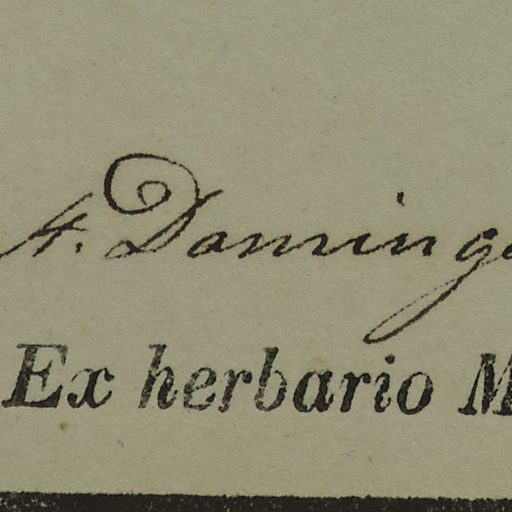 St. Domingo
Ex herbario M